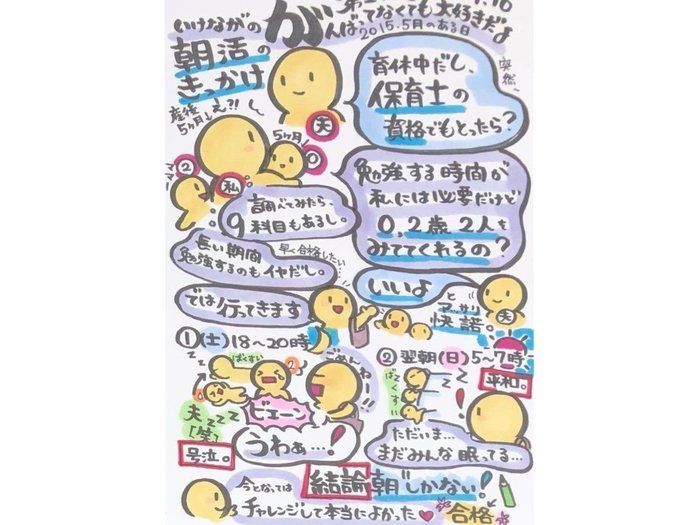 いけながの
朝活の
きっかけ
がんばってなくても大好きだよ
2015.5月のある日
突然
育休中だし、
保育士の
資格でもとったら?
夫
産後
5ヶ月
え?!
5ヶ月
0
ママー
2
私
勉強する時間が
私には必要だけど
0,2歳2人を
みててくれるの?
調べてみたら
科目もあるし。
長い期間
勉強するのもイヤだし。
早く合格したい…
いいよ
とアッサリ
快諾。
夫
では行ってきます
①(土)18〜20時
ばくすい
ごめんねー!!
ビェーン
夫zzz
「笑」
号泣。
うわぁ…!
②翌朝(日)5〜7時
平和。
ばくすい
zzz
ただいま…
まだみんな眠ってる…
結論 朝しかない!
今となっては
チャレンジして本当によかった
合格